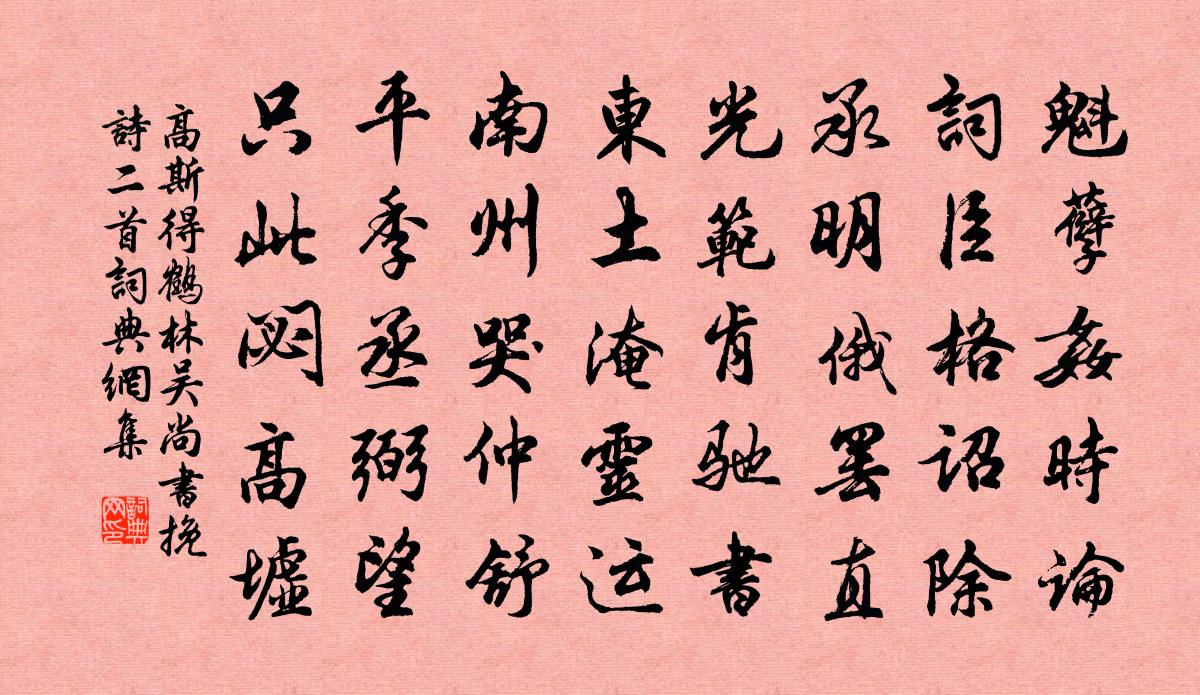 魁孽姦時論
詞臣格詔除
承明俄罢直
光範肯驰書
東土淹靈运
南州哭仲舒
平季丞弼望
只此閟高墟
高斯得鶴林吴尚書挽
詩二首詞典網集
詞典网印